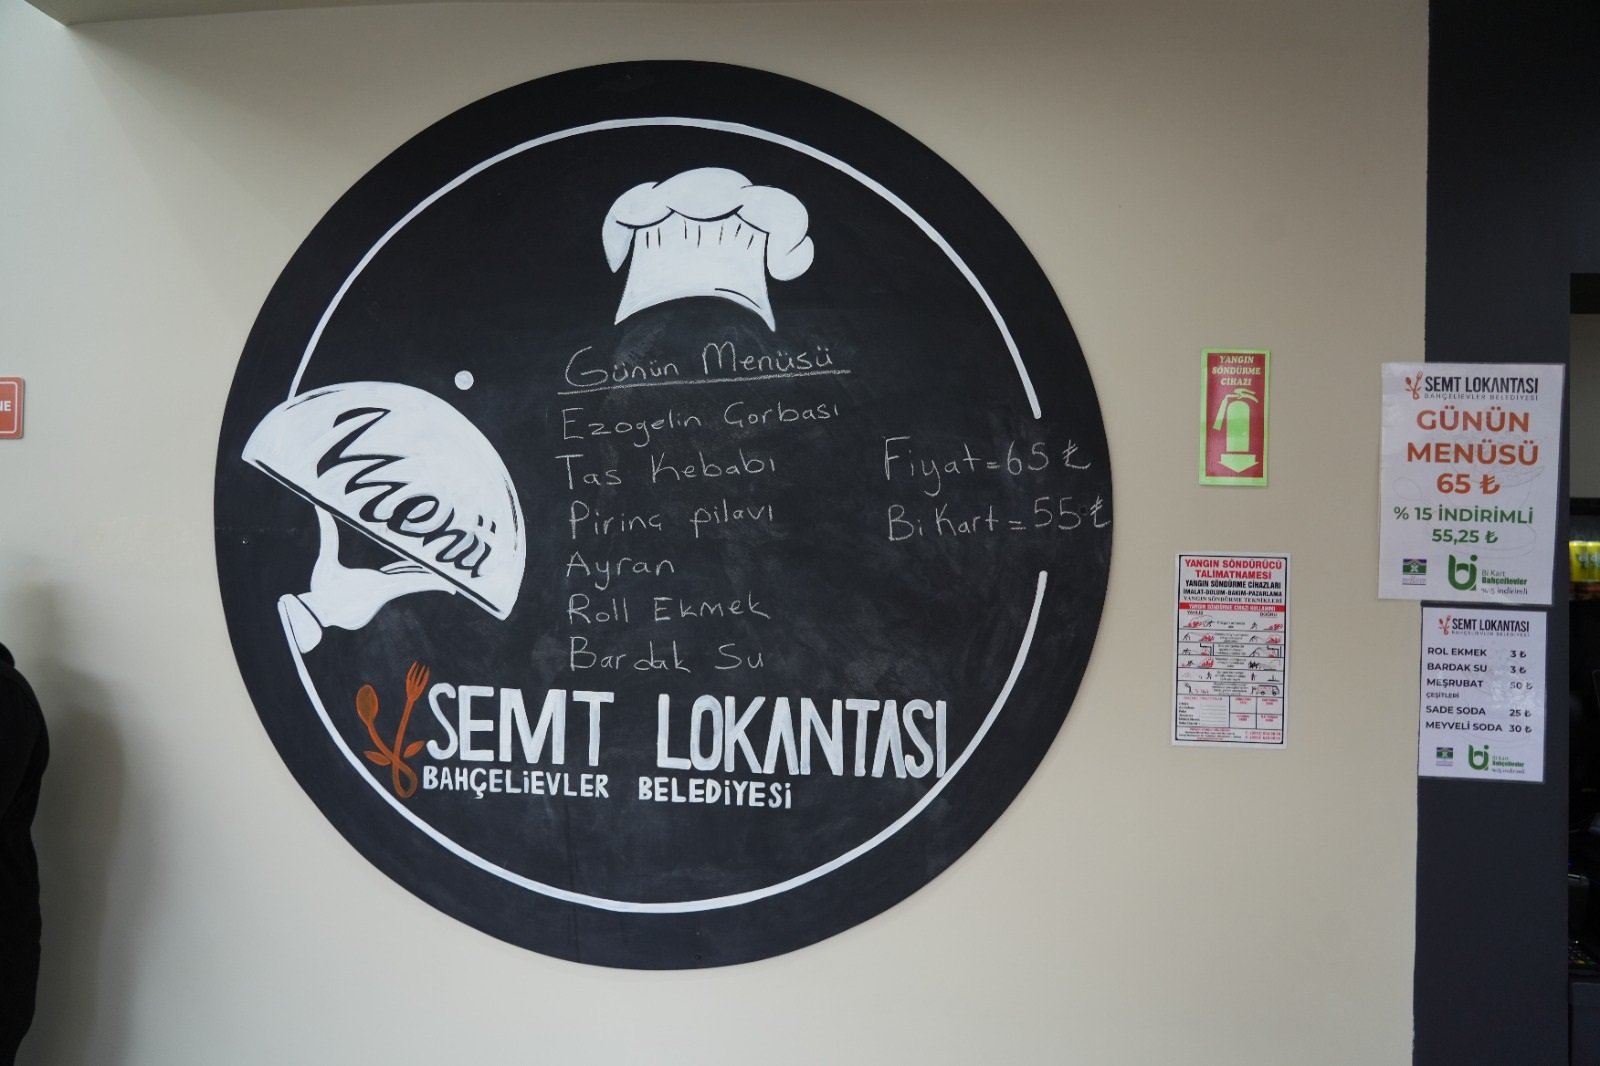 NE
Menü
Günün Menüsü
Ezogelin Çorbası
Tas Kebabı
Pirinç pilavı
Ayran
Roll Ekmek
Bardak Su
Fiyat=65 ₺
Bi Kart=55 ₺
SEMT LOKANTASI
BAHÇELİEVLER BELEDİYESİ
YANGIN
SÖNDÜRME
CİHAZI
YANGIN SÖNDÜRÜCÜ
TALİMATNAMESİ
YANGIN SÖNDÜRME CİHAZLARI
İMALAT-DOLUM-BAKIM-PAZARLAMA
YANGIN SÖNDÜRME TEKNİKLERİ
YANGIN SÖNDÜRME CİHAZI KULLANIMI
YANLIŞ DOĞRU
SEMT LOKANTASI
BAHÇELİEVLER BELEDİYESİ
GÜNÜN
MENÜSÜ
65 ₺
% 15 İNDİRİMLİ
55,25 ₺
bi
Bi Kart
Bahçelievler
%15 indirimli
SEMT LOKANTASI
BAHÇELİEVLER BELEDİYESİ
ROL EKMEK 3 ₺
BARDAK SU 3 ₺
MEŞRUBAT 50 ₺
ÇEŞİTLERİ
SADE SODA 25 ₺
MEYVELİ SODA 30 ₺
bi
Bi Kart
Bahçelievler
%15 indirimli